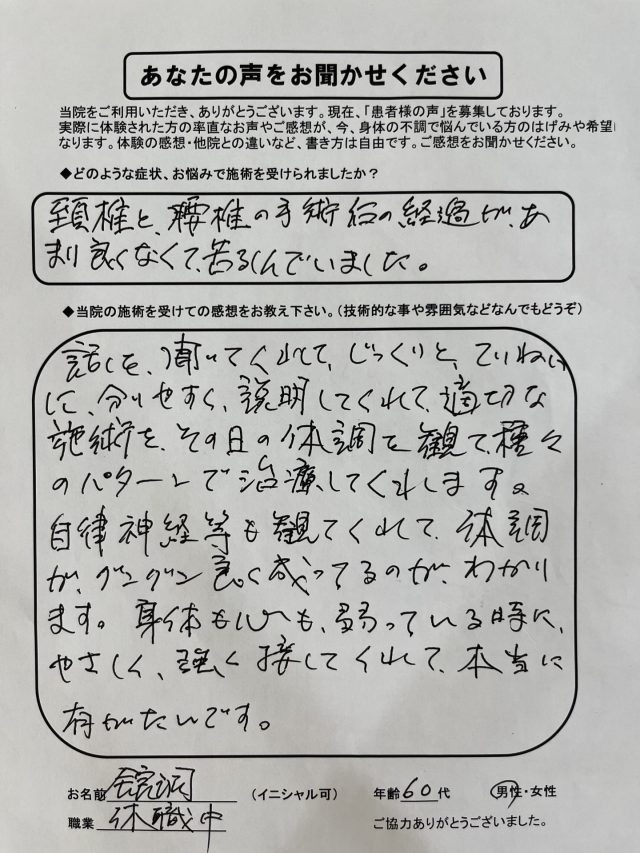 あなたの声をお聞かせください
当院をご利用いただき、ありがとうございます。現在、「患者様の声」を募集しております。
実際に体験された方の率直なお声やご感想が、今、身体の不調で悩んでいる方のはげみや希望に
なります。体験の感想・他院との違いなど、書き方は自由です。ご感想をお聞かせください。
◆どのような症状、お悩みで施術を受けられましたか？
頚椎と、腰椎の手術后の経過が、あ
まり良くなくて、苦るしんでいました。
◆当院の施術を受けての感想をお教え下さい。（技術的な事や雰囲気などなんでもどうぞ）
話しを、聞いてくれて、じっくりと、ていねい
に、分りやすく、説明してくれて、適切な
施術を、その日の体調を観て、種々
のパターンで治療してくれします。
自律神経等も観てくれて、体調
が、グングン良く成ってるのが、わかり
ます。身体も心も、弱っている時に、
やさしく、強く接してくれて、本当に
有がたいです。
お名前 （イニシャル可） 年齢60代 男性・女性
職業 休職中 ご協力ありがとうございました。